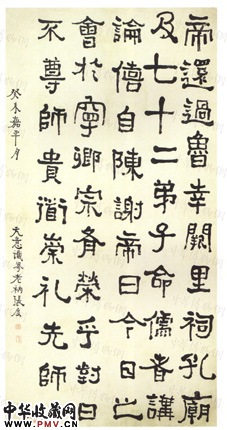 帝還過魯幸闕里祠孔廟
及七十二弟子命儒者講
論僖自陳謝帝曰今日之
會於寧卿宗有榮乎對曰
不尊師貴道崇礼先師
嘉平月
老衲張度
中华收藏网
WWW.PMV.CN